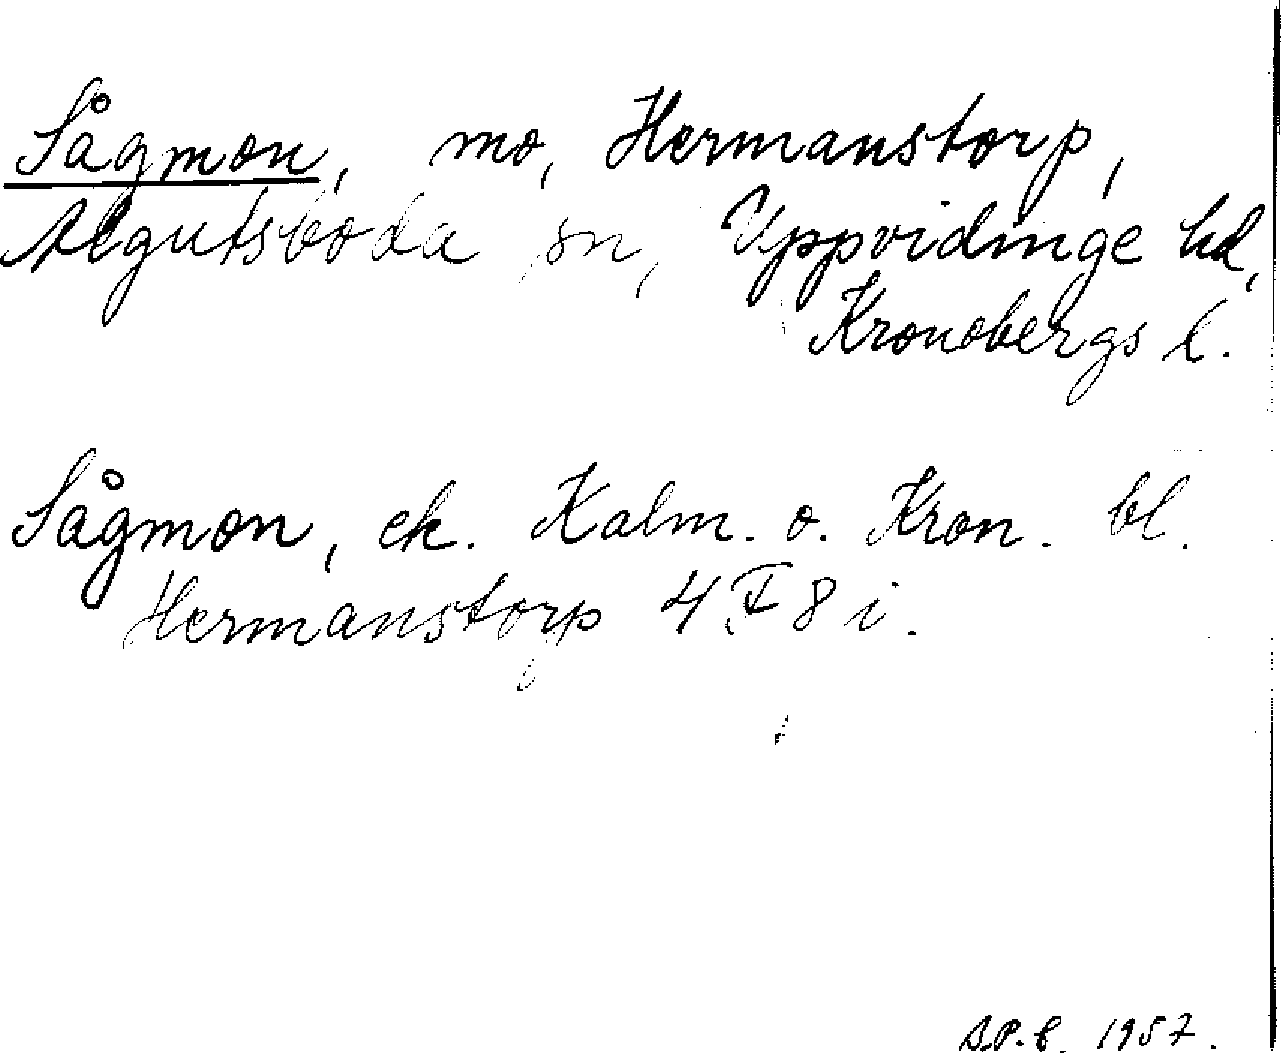 Sågmon, mo, Hermanstorp,
Älgutsboda sn, Uppvidinge hd,
Kronobergs l.
Sågmon, ek. Kalm. o. Kron. bl.
Hermanstorp 4 F 8 i.
1957.